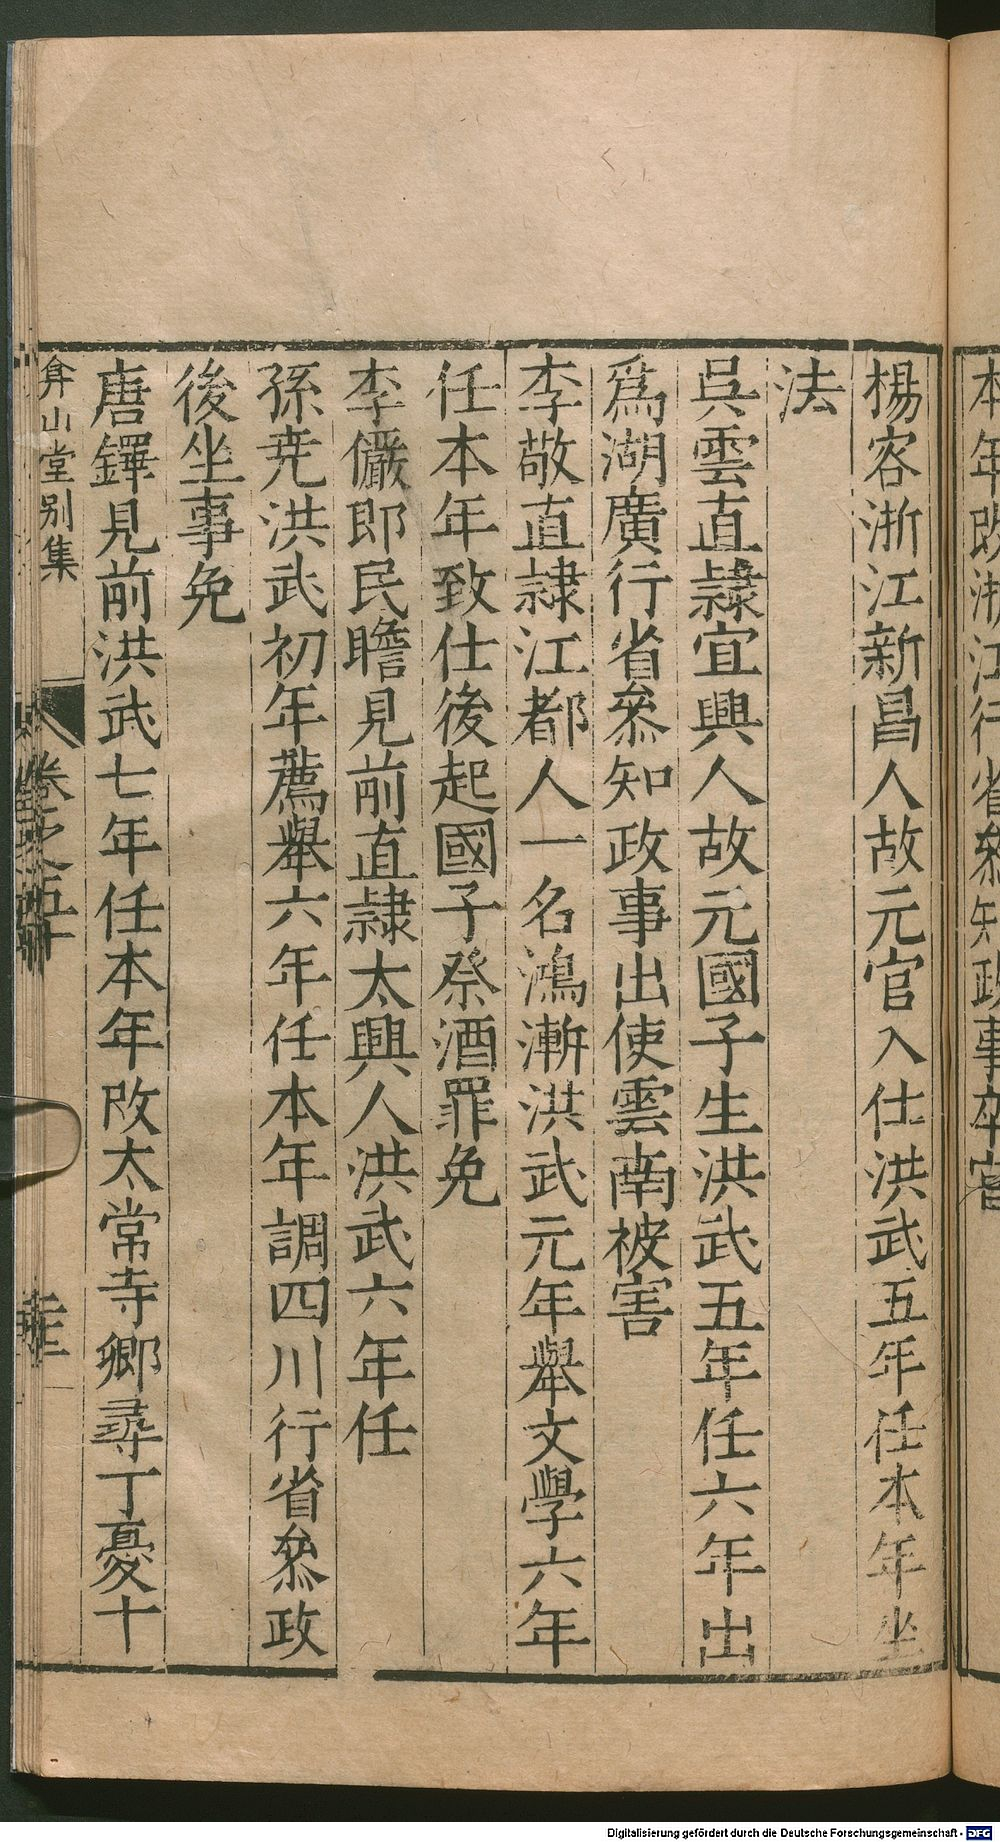 本年改浙江行省叅知政事卒官
楊客浙江新昌人故元官入仕洪武五年任本年坐
法
吳雲直隷宜興人故元國子生洪武五年任六年出
爲湖廣行省叅知政事出使雲南被害
李敬直隷江都人一名鴻漸洪武元年舉文學六年
任本年致仕後起國子祭酒罪免
李儼卽民瞻見前直隷太興人洪武六年任
孫尭洪武初年薦舉六年任本年調四川行省叅政
後坐事免
唐鐸見前洪武七年任本年改太常寺卿尋丁憂十
弇山堂别集
卷之五十
Digitalisierung gefördert durch die Deutsche Forschungsgemeinschaft - DFG